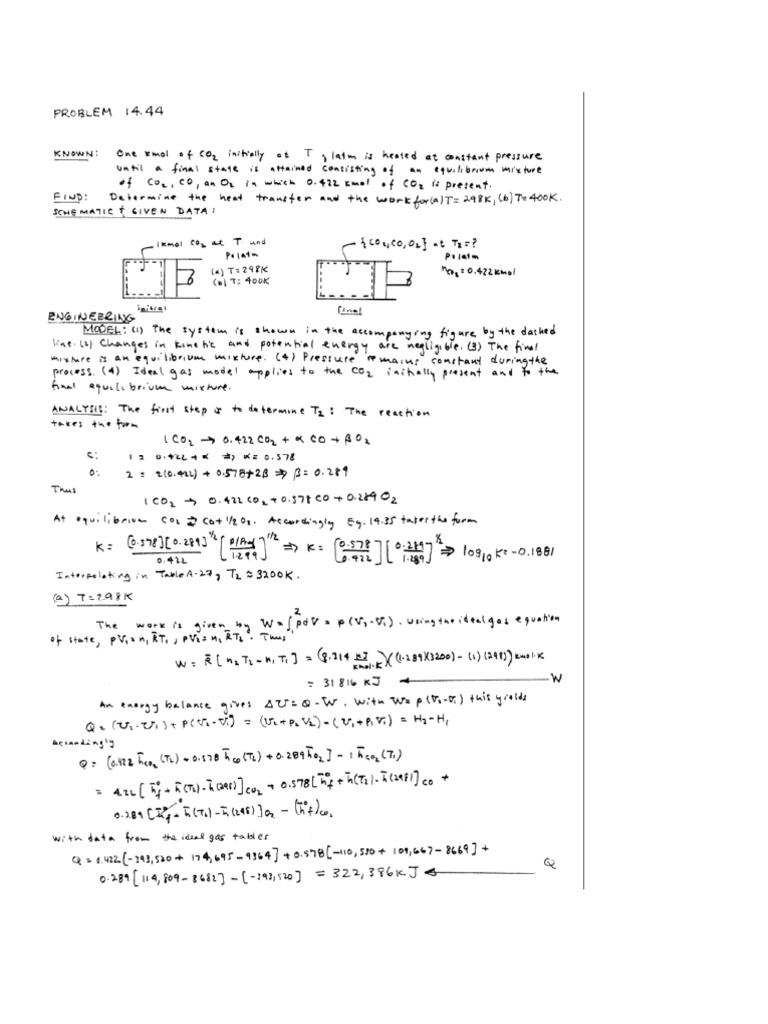 PROBLEM 14.44
KNOWN: One kmol of CO₂ initially at T, 1atm is heated at constant pressure
until a final state is attained consisting of an equilibrium mixture
of CO₂, CO, an O₂ in which 0.422 kmol of CO₂ is present.
FIND: Determine the heat transfer and the work for (a) T = 298K, (b) T = 400K.
SCHEMATIC & GIVEN DATA:
1kmol CO₂ at T and
p=1atm
(a) T = 298K
(b) T = 400K
initial
{CO₂, CO, O₂} at T₂ = ?
p=1atm
nCO₂ = 0.422kmol
final
ENGINEERING
MODEL: (1) The system is shown in the accompanying figure by the dashed
line. (2) Changes in kinetic and potential energy are negligible. (3) The final
mixture is an equilibrium mixture. (4) Pressure remains constant during the
process. (4) Ideal gas model applies to the CO₂ initially present and to the
final equilibrium mixture.
ANALYSIS: The first step is to determine T₂: The reaction
takes the form
1 CO₂ → 0.422 CO₂ + α CO + β O₂
C: 1 = 0.422 + α ⇒ α = 0.578
O: 2 = 2(0.422) + 0.578 + 2β ⇒ β = 0.289
Thus
1 CO₂ → 0.422 CO₂ + 0.578 CO + 0.289 O₂
At equilibrium CO₂ ⇌ CO + 1/2 O₂. Accordingly Eq. 14.35 takes the form
K = [0.578][0.289]^1/2 / 0.422 [p/pref / 1.289]^1/2 ⇒ K = [0.578/0.422][0.289/1.289]^1/2 ⇒ log₁₀K = -0.1881
Interpolating in Table A-27, T₂ ≈ 3200K.
(a) T = 298K
The work is given by W = ∫₁² pdV = p(V₂-V₁). Using the ideal gas equation
of state, pV₁ = n₁R̄T₁, pV₂ = n₂R̄T₂. Thus
W = R̄[n₂T₂ - n₁T₁] = (8.314 kJ/kmol·K)((1.289)(3200) - (1)(298)) kmol·K
= 31816 kJ ← W
An energy balance gives ΔU = Q - W. With W = p(V₂-V₁) this yields
Q = (U₂-U₁) + p(V₂-V₁) = (U₂+p₂V₂) - (U₁+p₁V₁) = H₂-H₁
Accordingly
Q = [0.422 h̄CO₂(T₂) + 0.578 h̄CO(T₂) + 0.289 h̄O₂] - 1 h̄CO₂(T₁)
= .422[h̄°f + h̄(T₂) - h̄(298)]CO₂ + 0.578[h̄°f + h̄(T₂) - h̄(298)]CO +
0.289[h̄°f + h̄(T₂) - h̄(298)]O₂ - (h̄°f)CO₂
With data from the ideal gas tables
Q = 0.422[-393,520 + 174,695 - 9364] + 0.578[-110,530 + 109,667 - 8669] +
0.289[114,809 - 8682] - [-393,520] = 322,386 kJ ← Q